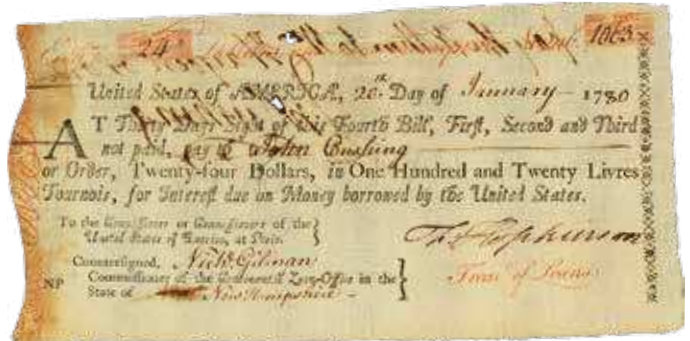 24
1063
United States of AMERICA, 20th Day of January 1780
AT Thirty Days Sight of this Fourth Bill, First, Second and Third
not paid, pay to John Cushing
or Order, Twenty-four Dollars, in One Hundred and Twenty Livres
Tournois, for Interest due on Money borrowed by the United States.
To the Commissioner or Commissioners of the
United States of America, at Paris.
Countersigned, Nichs. Gilman
Commissioner of the Continental Loan-Office in the
NP State of New Hampshire
Hopkinson
Treas of Loans